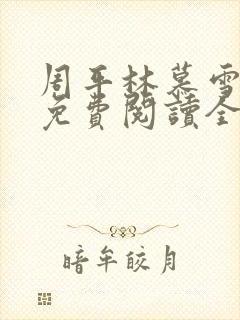 周平林慕雪
免費閱讀全
暗牟皎月